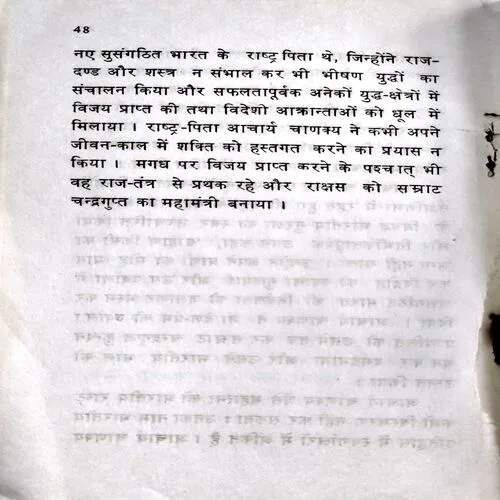 48
नए सुसंगठित भारत के राष्ट्रपिता थे, जिन्होंने राज-
दण्ड और शस्त्र न संभाल कर भी भीषण युद्धों का
संचालन किया और सफलतापूर्वक अनेकों युद्ध-क्षेत्रों में
विजय प्राप्त की तथा विदेशो आक्रान्ताओं को धूल में
मिलाया । राष्ट्र-पिता आचार्य चाणक्य ने कभी अपने
जीवन-काल में शक्ति को हस्तगत करने का प्रयास न
किया । मगध पर विजय प्राप्त करने के पश्चात् भी
वह राज-तंत्र से प्रथक रहे और राक्षस को सम्राट
चन्द्रगुप्त का महामंत्री बनाया ।